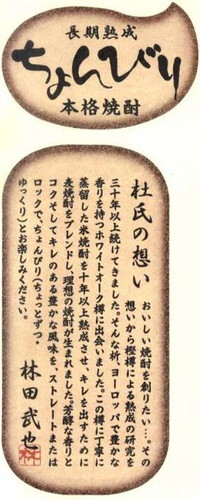 長期熟成
ちょんびり
本格焼酎
杜氏の想い
おいしい焼酎を創りたい…。その
想いから樫樽による熟成の研究を
三十年以上続けてきました。そんな折、ヨーロッパで豊かな
香りを持つホワイトオーク樽に出会いました。この樽に丁寧に
蒸留した米焼酎を十年以上熟成させ、キレを出すために
麦焼酎をブレンドし、理想の焼酎が生まれました。芳醇な香りと
コクそしてキレのある豊かな風味を、ストレートまたは
ロックで、ちょんびり(ちょっとずつ・
ゆっくり)とお楽しみください。
林田武也